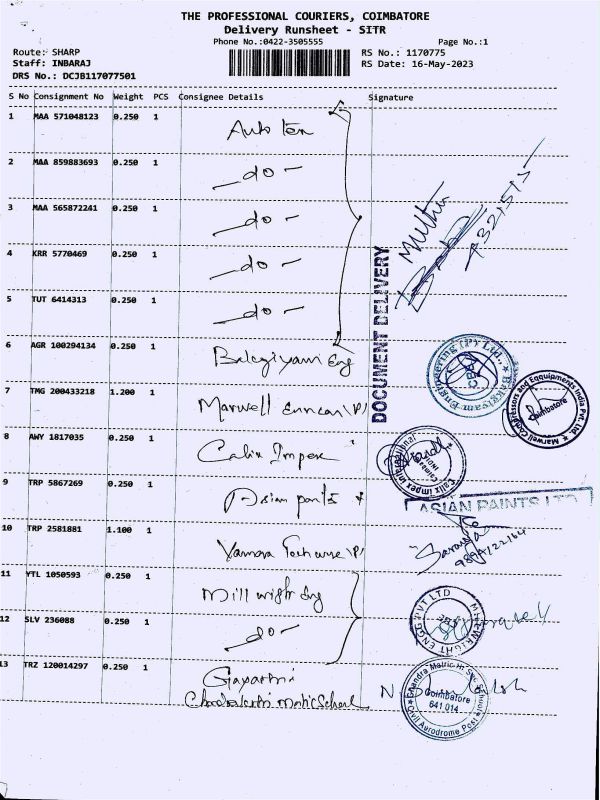 THE PROFESSIONAL COURIERS, COIMBATORE
Delivery Runsheet - SITR
Phone No.:0422-3505555 Page No.:1
Route: SHARP RS No.: 1170775
Staff: INBARAJ RS Date: 16-May-2023
DRS No.: DCJB117077501
S No Consignment No Weight PCS Consignee Details Signature
1 MAA 571048123 0.250 1 Auto Tex
2 MAA 859883693 0.250 1 -do-
3 MAA 565872241 0.250 1 -do-
4 KRR 5770469 0.250 1 -do-
5 TUT 6414313 0.250 1 -do-
DOCUMENT DELIVERY
6 AGR 100294134 0.250 1 Eng
Engineering (P) Ltd.,
7 TMG 200433218 1.200 1 Marwell
Marwell Compressors and Equipments India Pvt. Ltd.
Coimbatore
8 AWY 1817035 0.250 1 Calix Impex
Calix impex international
9 TRP 5867269 0.250 1 Asian paints
ASIAN PAINTS LTD
10 TRP 2581881 1.100 1
11 YTL 1050593 0.250 1 Mill wright Eng
MILLWRIGHT ENGG PVT LTD
12 SLV 236088 0.250 1 -do-
13 TRZ 120014297 0.250 1 Gayathri
School
Chandra Matric Hr. Sec. School
Coimbatore
641 014
Civil Aerodrome Post